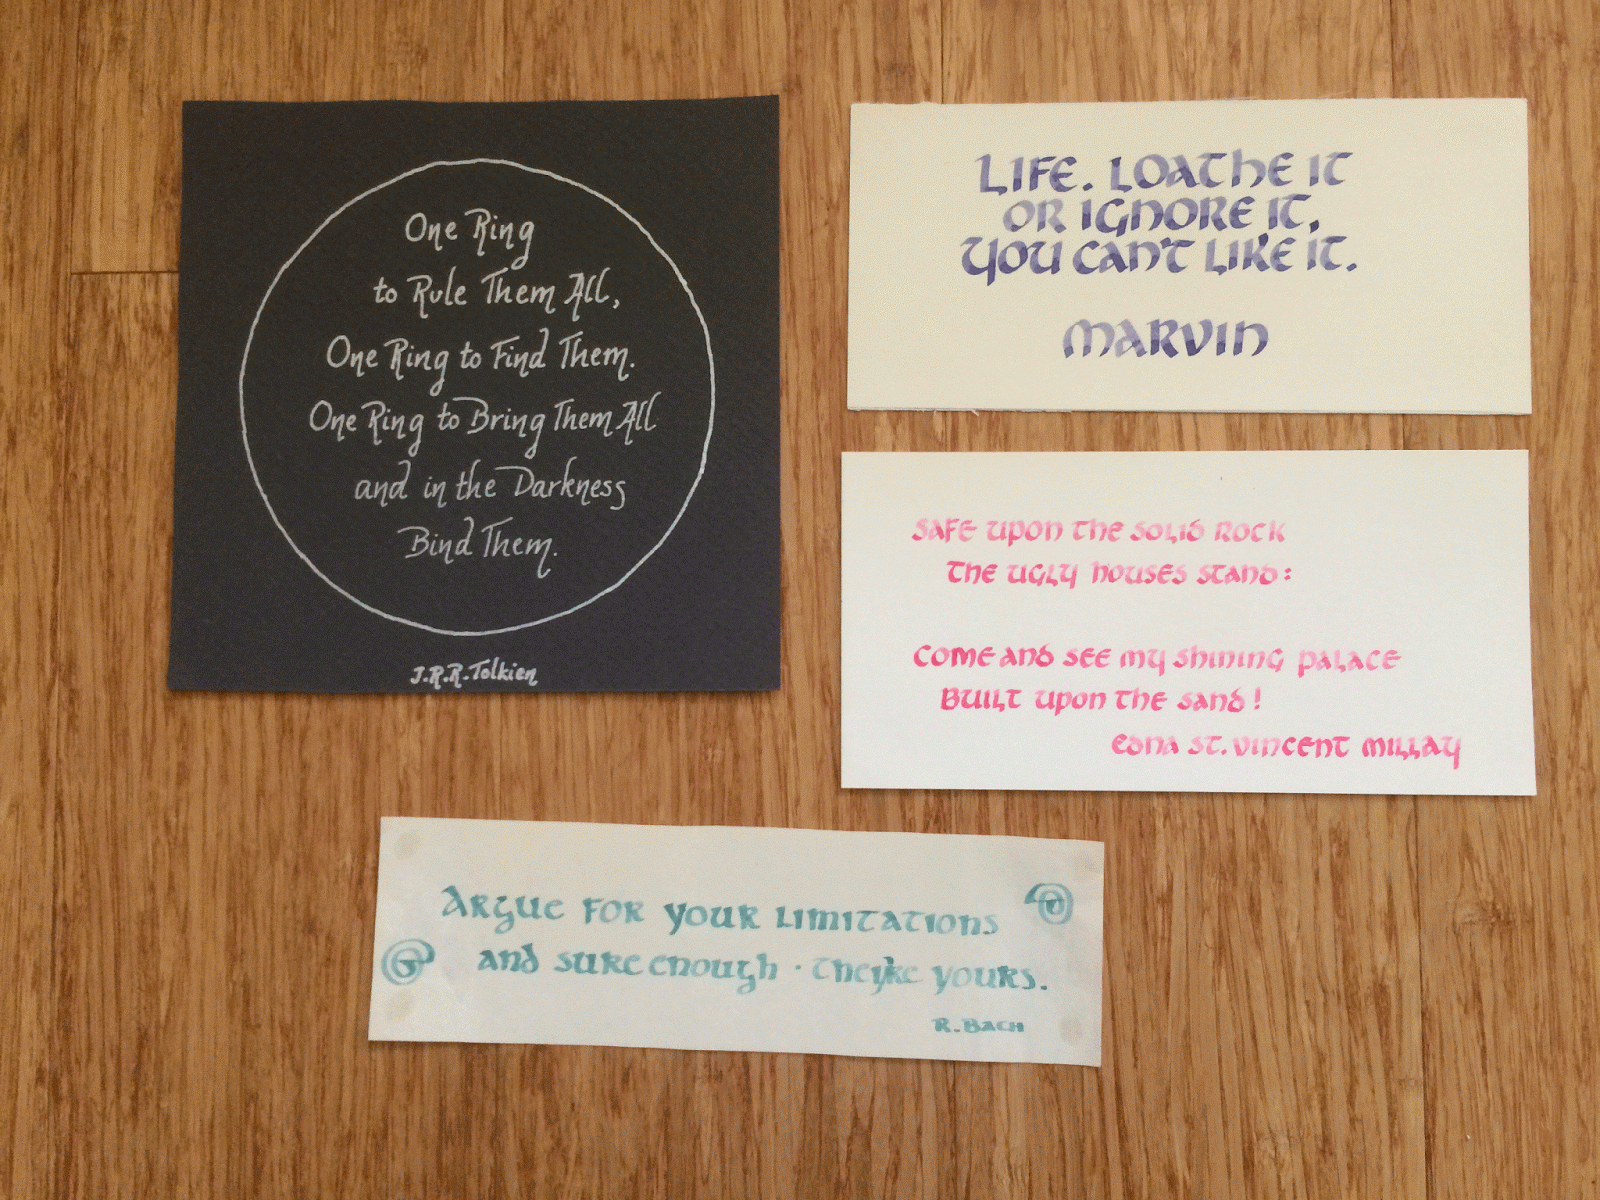 One Ring
to Rule Them All,
One Ring to Find Them.
One Ring to Bring Them All
and in the Darkness
Bind Them.
J.R.R. Tolkien
LIFE. LOATHE IT
OR IGNORE IT,
YOU CAN'T LIKE IT.
MARVIN
SAFE UPON THE SOLID ROCK
THE UGLY HOUSES STAND:
COME AND SEE MY SHINING PALACE
BUILT UPON THE SAND!
EDNA ST. VINCENT MILLAY
ARGUE FOR YOUR LIMITATIONS
AND SURE ENOUGH · THEY'RE YOURS.
R. BACH